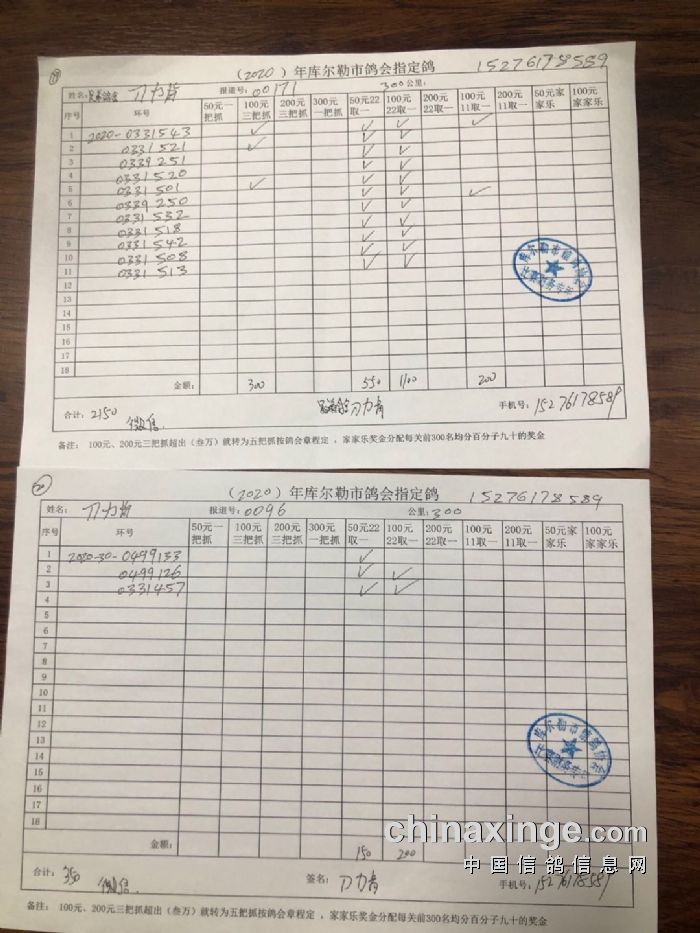 19
（2020）年库尔勒市鸽会指定鸽 15276178589
姓名: 刀力 报道号: 00171 300公里:
序号 环号 50元一把抓 100元三把抓 200元三把抓 300元一把抓 50元22取一 100元22取一 200元22取一 100元11取一 200元11取一 50元家家乐 100元家家乐
1 2020-0331543 ✓ ✓ ✓ ✓
2 0331521 ✓ ✓ ✓
3 0339251 ✓ ✓
4 0331520 ✓ ✓
5 0331501 ✓ ✓ ✓ ✓
6 0339250 ✓ ✓
7 0331532 ✓ ✓
8 0331518 ✓ ✓
9 0331542 ✓ ✓
10 0331508 ✓ ✓
11 0331513 ✓ ✓
12
13
14
15
16
17
18
金额: 300 550 1100 200
合计: 2150 微信 刀力 手机号: 15276178589
备注： 100元、200元三把抓超出（叁万）就转为五把抓按鸽会章程定 ，家家乐奖金分配每关前300名均分百分子九十的奖金
库尔勒市信鸽协会
比赛财务专
20
（2020）年库尔勒市鸽会指定鸽 15276178589
姓名: 刀力 报道号: 0096 公里: 300
序号 环号 50元一把抓 100元三把抓 200元三把抓 300元一把抓 50元22取一 100元22取一 200元22取一 100元11取一 200元11取一 50元家家乐 100元家家乐
1 2020-30-0499133 ✓
2 0499126 ✓ ✓
3 0331457 ✓ ✓
4
5
6
7
8
9
10
11
12
13
14
15
16
17
18
金额: 150 200
合计: 350 微信 签名: 刀力 手机号: 15276178589
备注： 100元、200元三把抓超出（叁万）就转为五把抓按鸽会章程定 ，家家乐奖金分配每关前300名均分百分子九十的奖金
库尔勒市信鸽协会
比赛财务专
chinaxinge.com
中国信鸽信息网